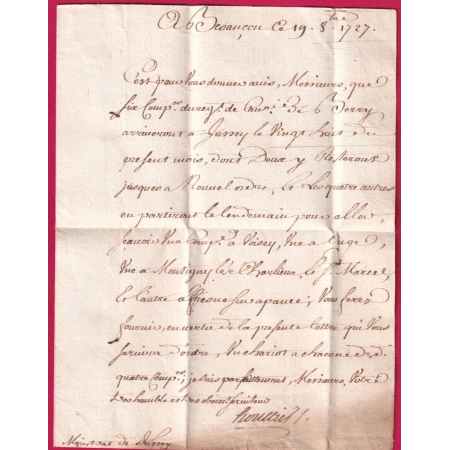 A Besancon Ce 19. 8.bre 1727.
C'est pour vous donner avis, Messieurs, que
six Comp.es du reg.t de Cav.ie De Berry
arriveront à Jussey le Vingt huit du
present mois, dont Deux y Resteront
jusques a Nouvel ordre, Et Les quatre autres
en partiront le lendemain pour aller,
sçavoir Une Comp.e à Voisey, Une a
Une à Montigny les Cherlieux, le S.t Marcel,
Et L'autre à ; Vous ferez
fournir, en vertu de la presente Lettre qui Vous
servira d'ordre, Un chariot a chacune des d.
quatre Comp.es, je suis parfaitement, Messieurs, Votre
tres humble et tres obeissant serviteur
Magistrat de Jussey